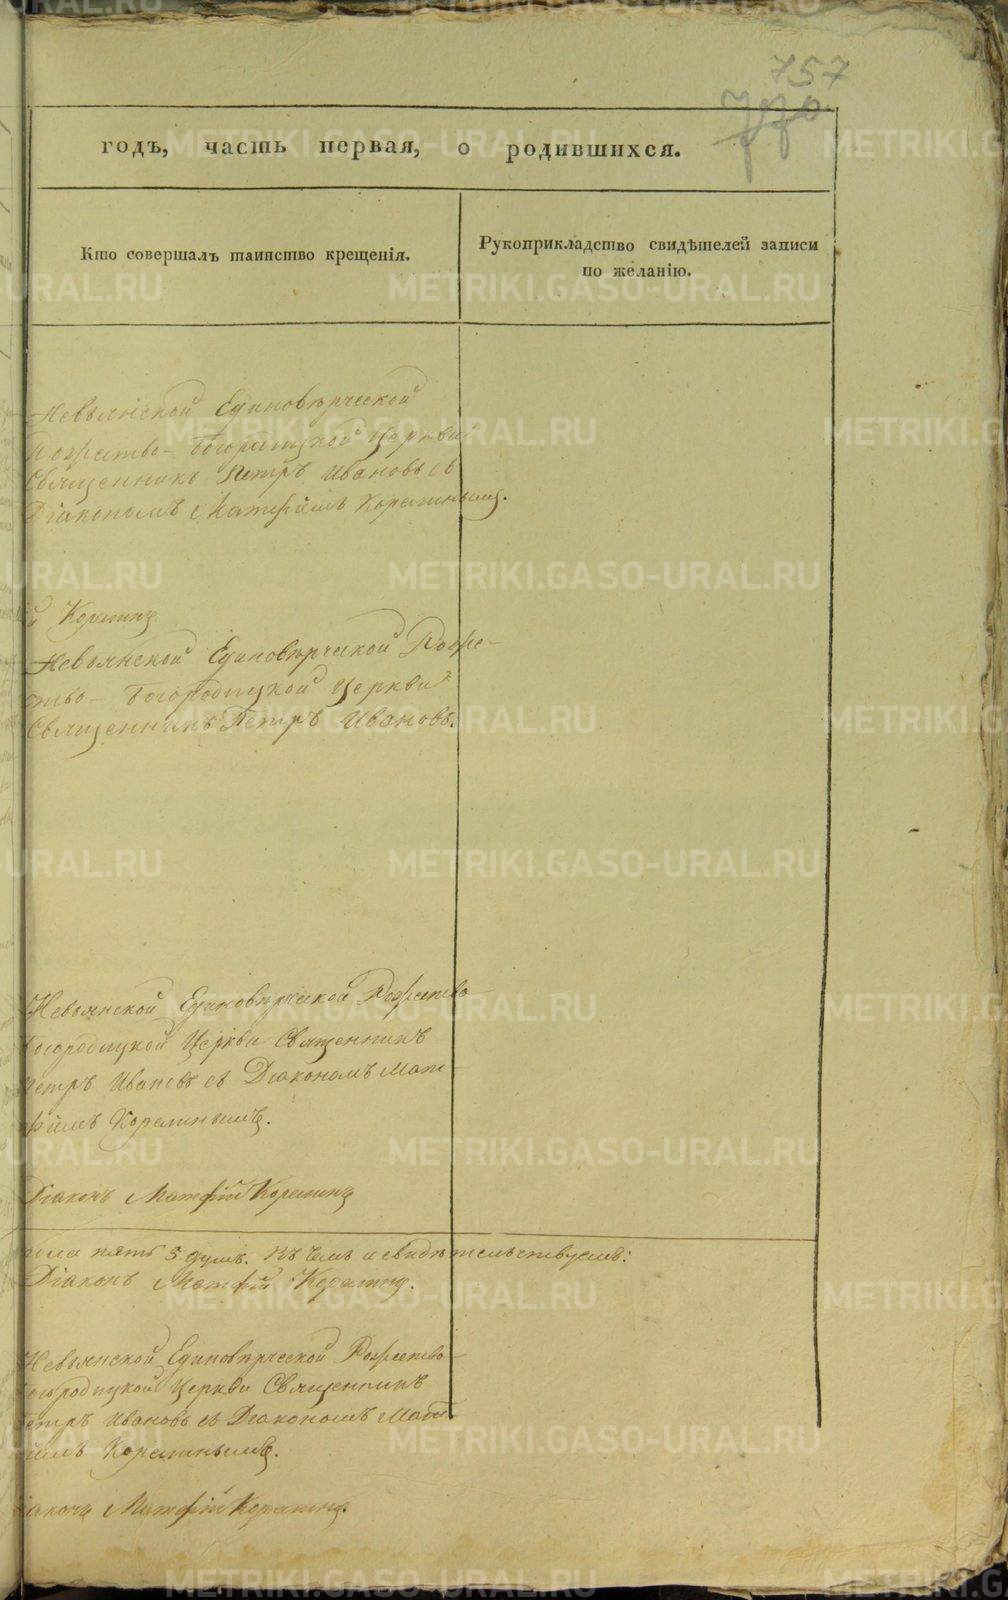 757
770.
годъ, часть первая, о родившихся.
Кто совершалъ таинство крещенія.
Рукоприкладство свидѣтелей записи
по желанію.
Невьянской Единовѣрческой
Рожество-Богородицкой Церкви
Священникъ Петръ Ивановъ съ
Діакономъ Матфіемъ Корелинымъ.
й Корелинъ
Невьянской Единовѣрческой Роже-
ство-Богородицкой Церкви
Священникъ Петръ Ивановъ.
Невьянской Единовѣрческой Рожество
Богородицкой Церкви Священникъ
Петръ Ивановъ съ Діакономъ Мат-
фіемъ Корелинымъ.
Діаконъ Матфій Корелинъ
пола пять 5 душъ. Въ чемъ и свидѣтельствуемъ:
Діаконъ Матфій Корелинъ.
Невьянской Единовѣрческой Рожество-
Богородицкой Церкви Священникъ
Петръ Ивановъ съ Діакономъ Матѳ
іемъ Корелинымъ.
іаконъ Матфій Корелинъ.
METRIKI.GASO-URAL.RU